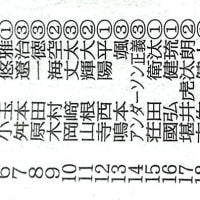 6 小玉 悠雅①
7 舛本 遼治③
8 原田 一徳③
9 木村 海空②
10 岡﨑 丈太③
11 山根 輝大②
12 寺西 陽平
13 鳴本 颯③
14 アンダーソン正義③
15 荘田 衛汰①
16 國弘 健琉①
17 堪井虎汰朗②
18